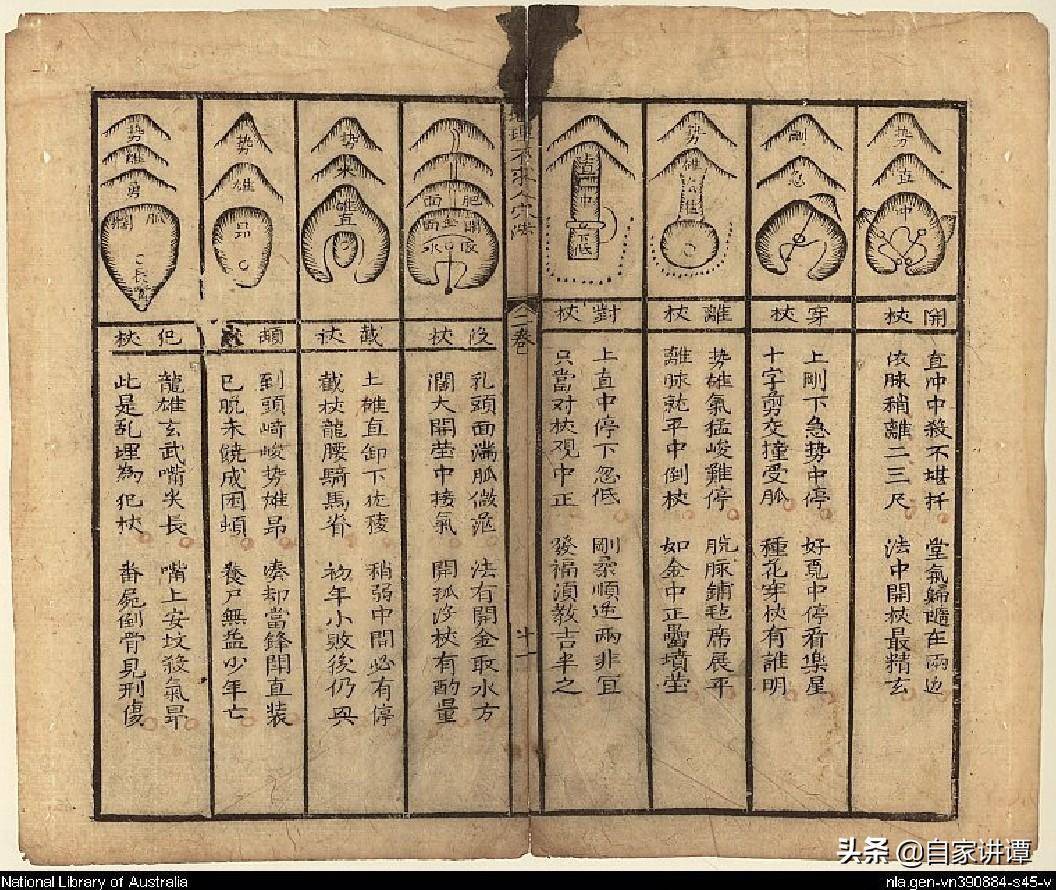 势
直
中
開杖
直冲中殺不堪扦 堂氣歸隨在兩边
依脉稍離二三尺 法中開杖最精玄
剛
急
穿杖
上剛下急势中停 好覓中停看樂星
十字剪交撞受胍 種花穿杖有誰明
势
雄
離杖
势雄氣猛峻難停 脱脉鋪毡席展平
離脉就平中倒杖 如金中正壘墳茔
直
中
下低
對杖
上直中停下忽低 剛柔順逆兩非宜
只當对杖观中正 發福須教吉半之
地理不求人穴法
二卷
十一
肥面
没杖
乳頭面滿胍微 法有開金取水方
濶大開茔中接氣 開孤 杖有酌量
势
来
雄
截杖
上雄直卸下拖稜 稍弱中間必有停
截杖龍腰騎馬脊 初年小败後仍興
势
雄
昂
頓
到頭崎峻势雄昂 凑却當鋒閗直装
已脱未饒成困頓 養尸無益少年亡
势
雄
勇
胍濶
長
犯杖
龍雄玄武嘴尖長 嘴上安坟殺氣昂
此是乱埋為犯杖 番屍倒骨見刑傷
头条 @自家讲谭
National Library of Australia
nla.gen-vn390884-s45-v